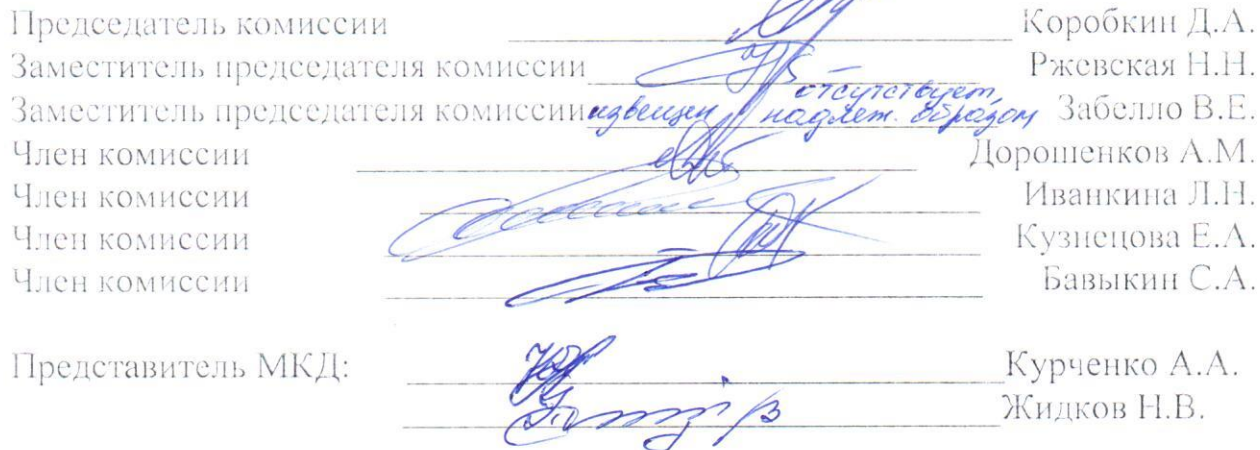 Председатель комиссии Коробкин Д.А.
Заместитель председателя комиссии Ржевская Н.Н.
Заместитель председателя комиссии извещен отсутствует, надлеж. образом Забелло В.Е.
Член комиссии Дорошенков А.М.
Член комиссии Иванкина Л.Н.
Член комиссии Кузнецова Е.А.
Член комиссии Бавыкин С.А.
Представитель МКД: Курченко А.А.
Жидков Н.В.